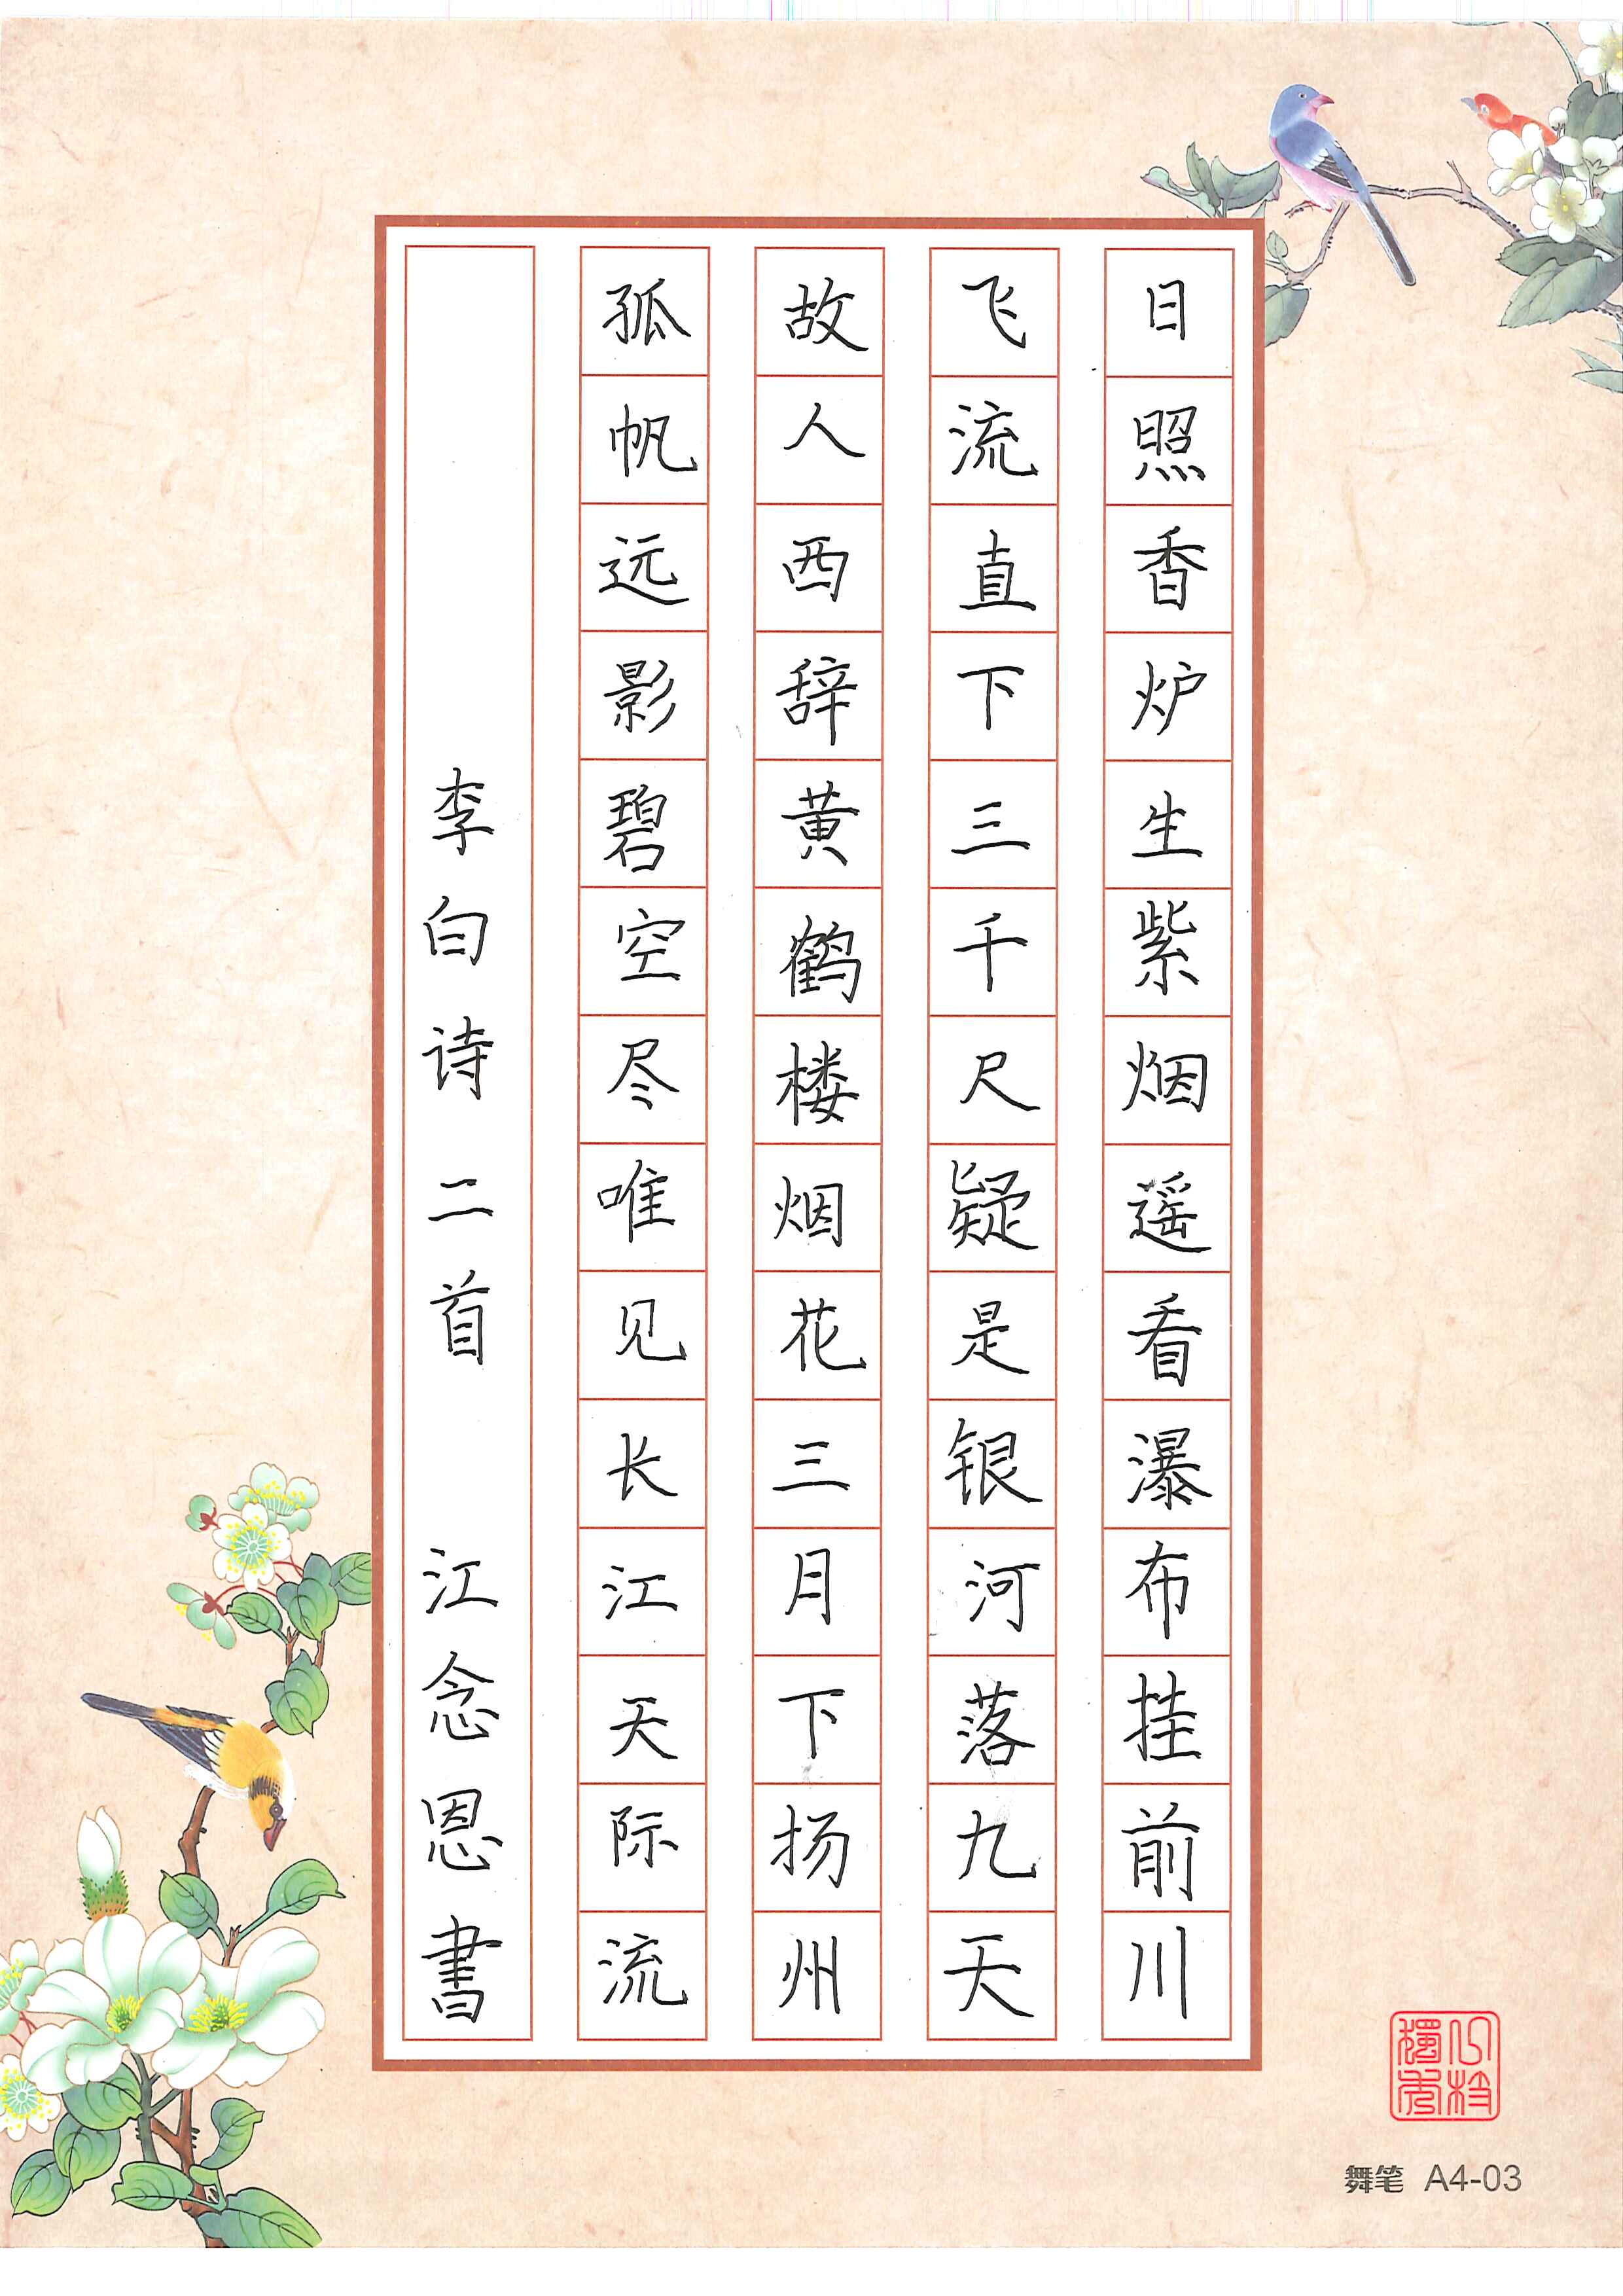 日照香炉生紫烟遥看瀑布挂前川
飞流直下三千尺疑是银河落九天
故人西辞黄鹤楼烟花三月下扬州
孤帆远影碧空尽唯见长江天际流
李白诗二首 江念恩書
舞笔 A4-03